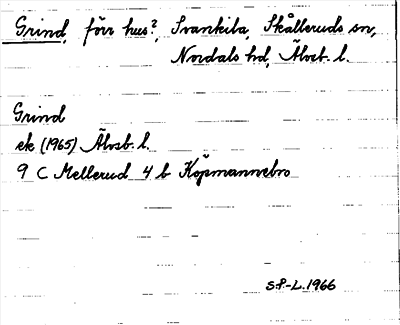 Grind, förr hus?, Svankila, Skålleruds sn,
Nordals hd, Älvsb. l.
Grind
ek (1965) Älvsb. l.
9 C Mellerud 4 b Köpmannebro
S.P.-L. 1966